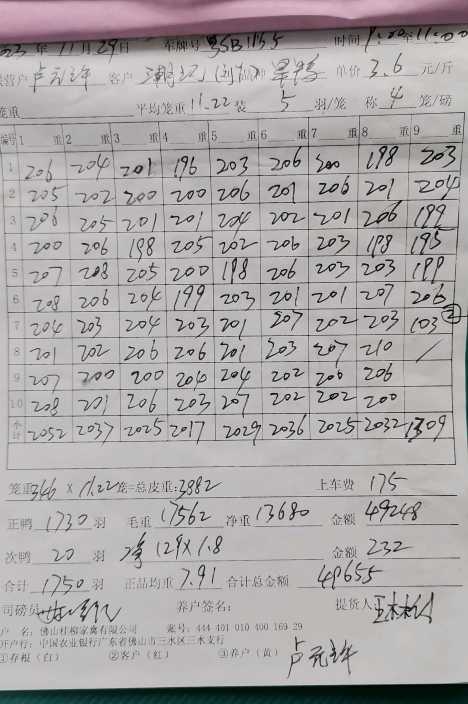 2023年11月29日 车牌号 粤SB1135 时间 9:00至11:00
养户 卢元年 客户 单价 3.6 元/斤
笼重 平均笼重11.22 装 5 羽/笼 称 4 笼/磅
编号 1 重 2 重 3 重 4 重 5 重 6 重 7 重 8 重 9 重
1 206 204 201 196 203 206 200 198 203
2 205 202 200 200 206 201 206 201 204
3 206 205 201 201 204 202 201 206 199
4 200 206 198 205 202 206 203 198 195
5 207 208 205 200 198 206 203 203 199
6 208 206 204 199 203 201 201 207 206
7 204 203 204 203 201 207 202 203 103 ②
8 201 202 206 206 201 203 207 210 /
9 207 200 200 204 204 202 200 206
10 208 201 206 203 207 202 202 200
小计 2052 2037 2025 2017 2029 2036 2025 2032 1309
笼重:346 × 11.22 笼=总皮重:3882 上车费 175
正鸭 1730 羽 毛重 17562 净重 13680 金额 49248
次鸭 20 羽 净 129×1.8 金额 232
合计 1750 羽 正品均重 7.91 合计总金额 49655
司磅员 养户签名: 提货人
户 名: 佛山桂柳家禽有限公司 账号: 444 401 010 400 169 29
开户行: 中国农业银行广东省佛山市三水区三水支行
①存根(白) ②客户(红) ③养户(黄) 卢元年